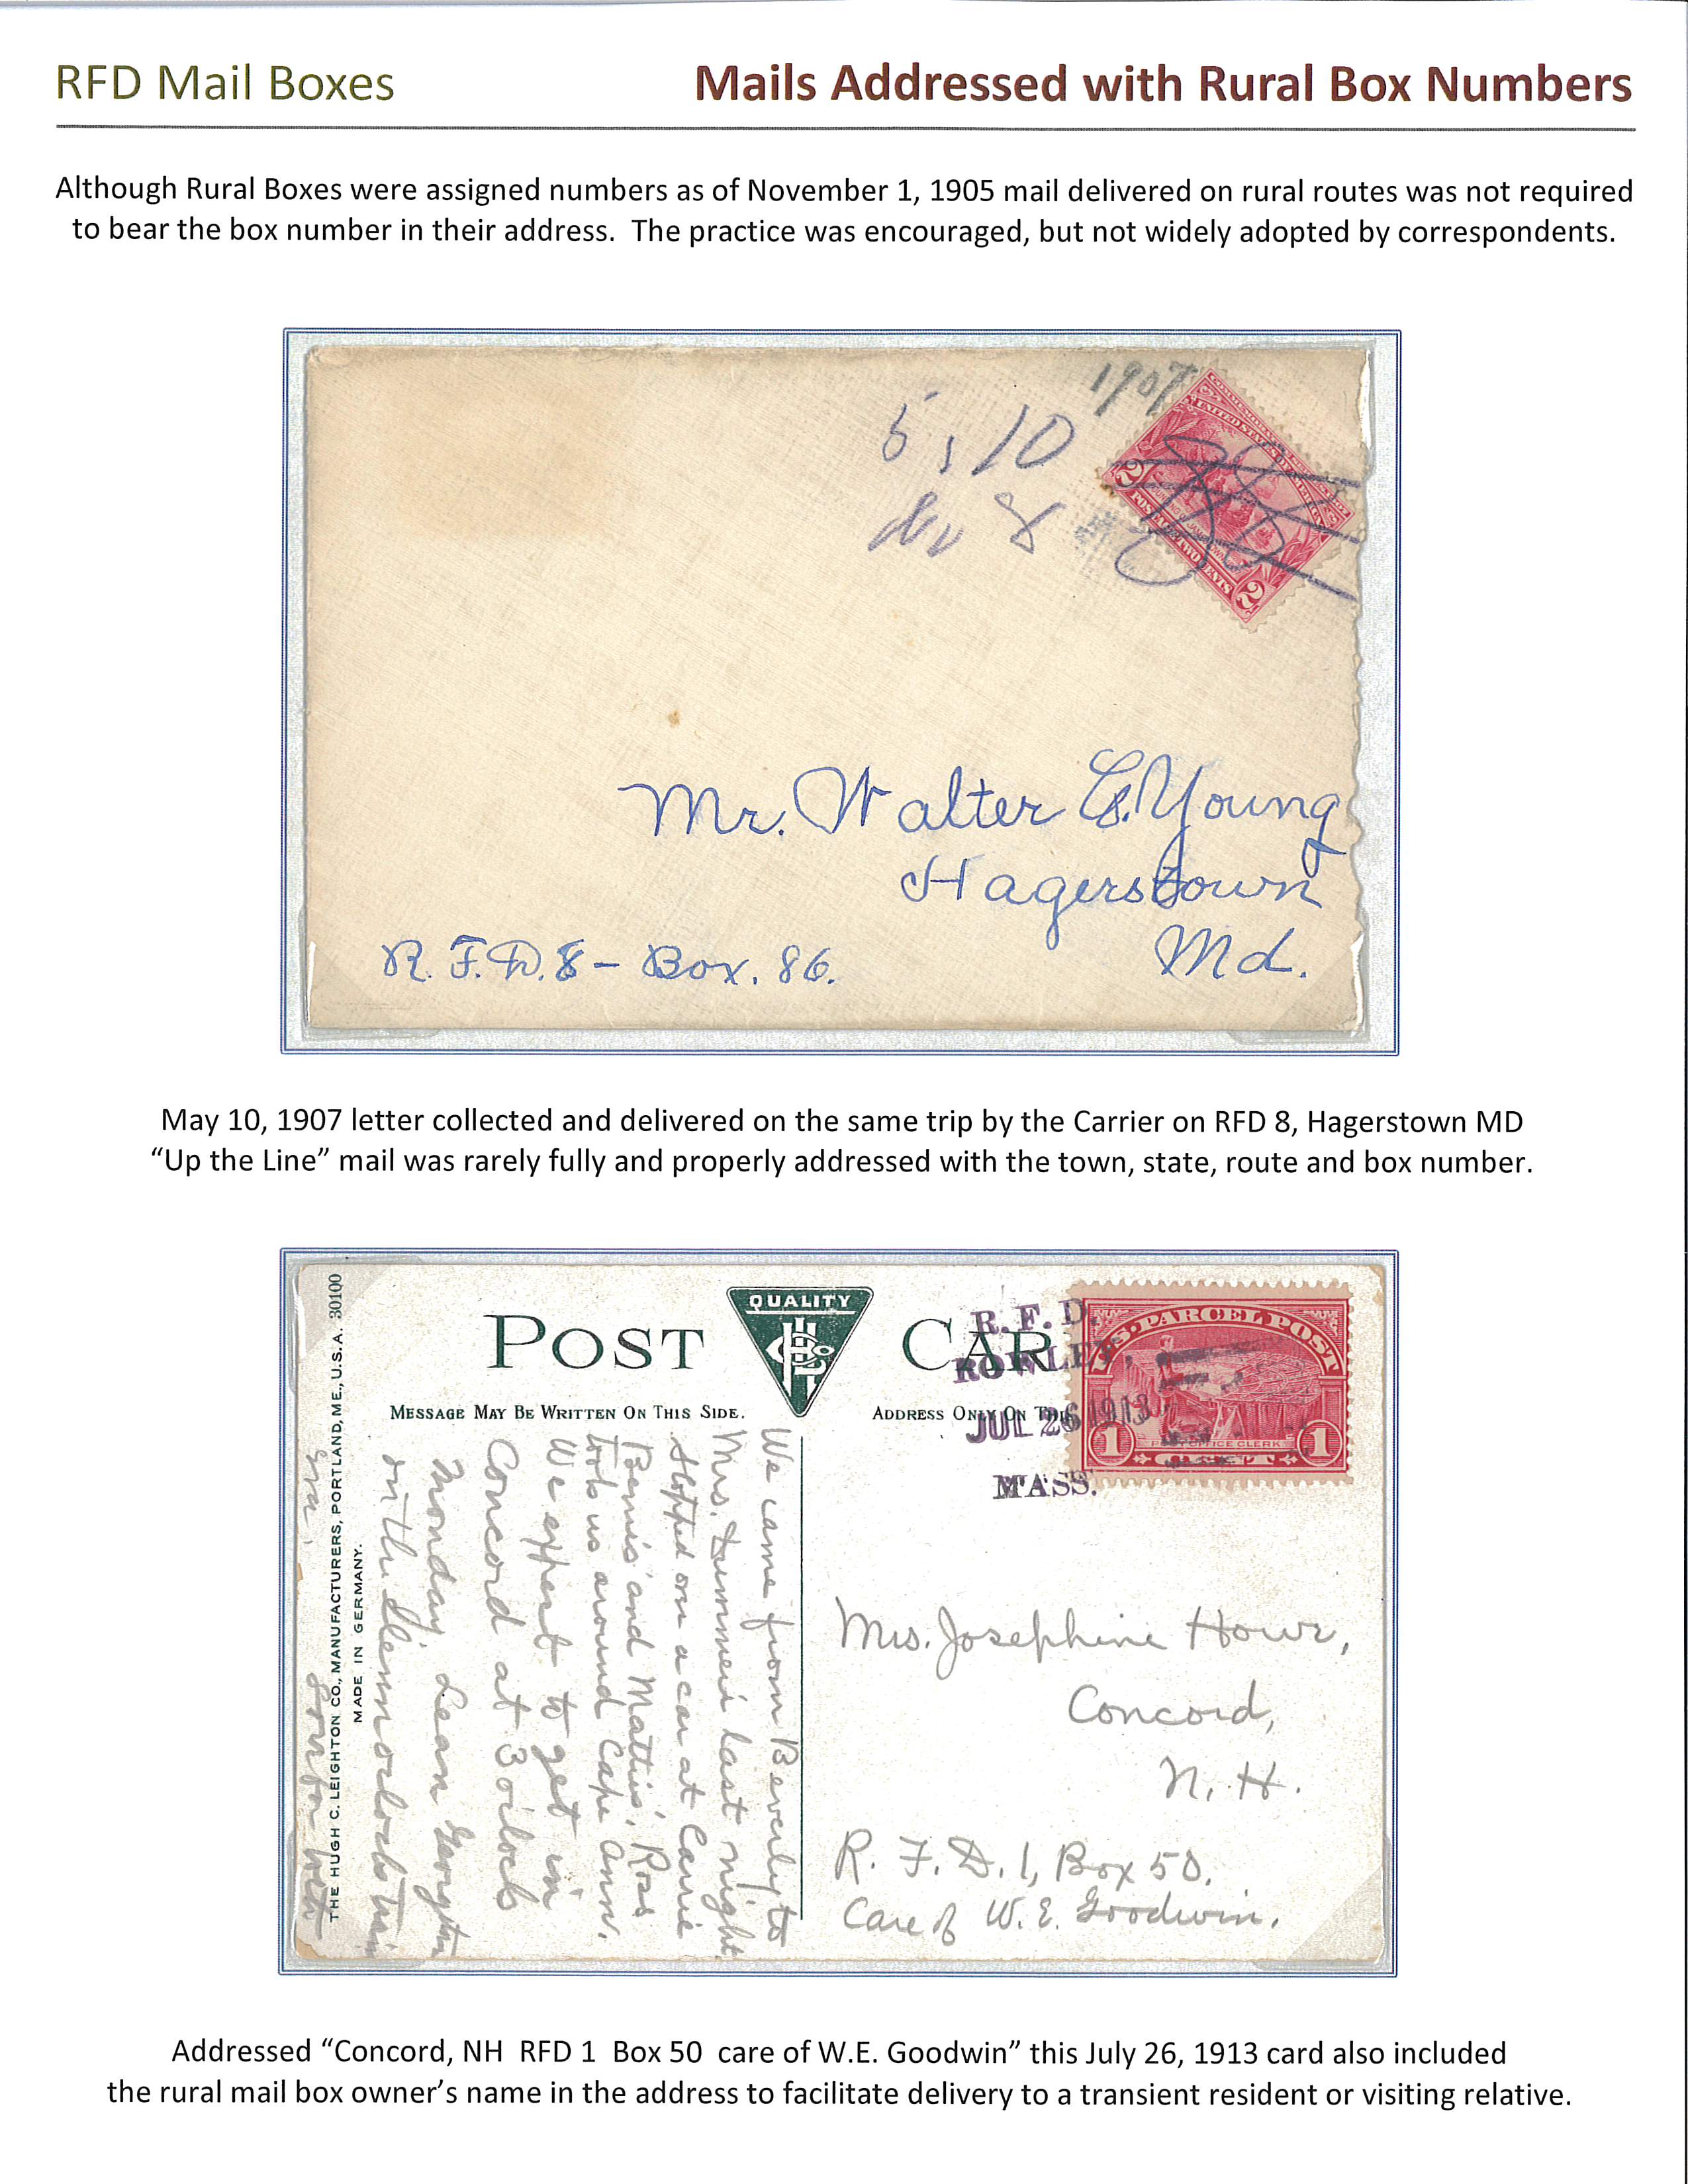 RFD Mail Boxes
Mails Addressed with Rural Box Numbers
Although Rural Boxes were assigned numbers as of November 1, 1905 mail delivered on rural routes was not required
to bear the box number in their address.  The practice was encouraged, but not widely adopted by correspondents.
1907
5, 10
8
UNITED STATES OF AMERICA
2 POSTAGE TWO CENTS 2
Mr. Walter Young
Hagerstown
Md.
R. F. D. 8 – Box. 86.
May 10, 1907 letter collected and delivered on the same trip by the Carrier on RFD 8, Hagerstown MD
“Up the Line” mail was rarely fully and properly addressed with the town, state, route and box number.
QUALITY
POST CARD
R. F. D.
ROWLEY,
JUL 26 1913
MASS.
U.S. PARCEL POST
1 POST OFFICE CLERK 1
CENT
MESSAGE MAY BE WRITTEN ON THIS SIDE.
ADDRESS ONLY ON THIS
We came from Beverly to
Mrs. last night.
Stopped on a car at Carrie
Bemis' and Mattie's, Ross
took us around Cape Ann.
We expect to get in
Concord at 3 o'clock
Monday.
on the train
THE HUGH C. LEIGHTON CO., MANUFACTURERS, PORTLAND, ME., U.S.A. 30100
MADE IN GERMANY.
Mrs. Josephine Howe,
Concord,
N. H.
R. F. D. 1, Box 50.
Care of W. E. Goodwin.
Addressed “Concord, NH  RFD 1  Box 50  care of W.E. Goodwin” this July 26, 1913 card also included
the rural mail box owner’s name in the address to facilitate delivery to a transient resident or visiting relative.